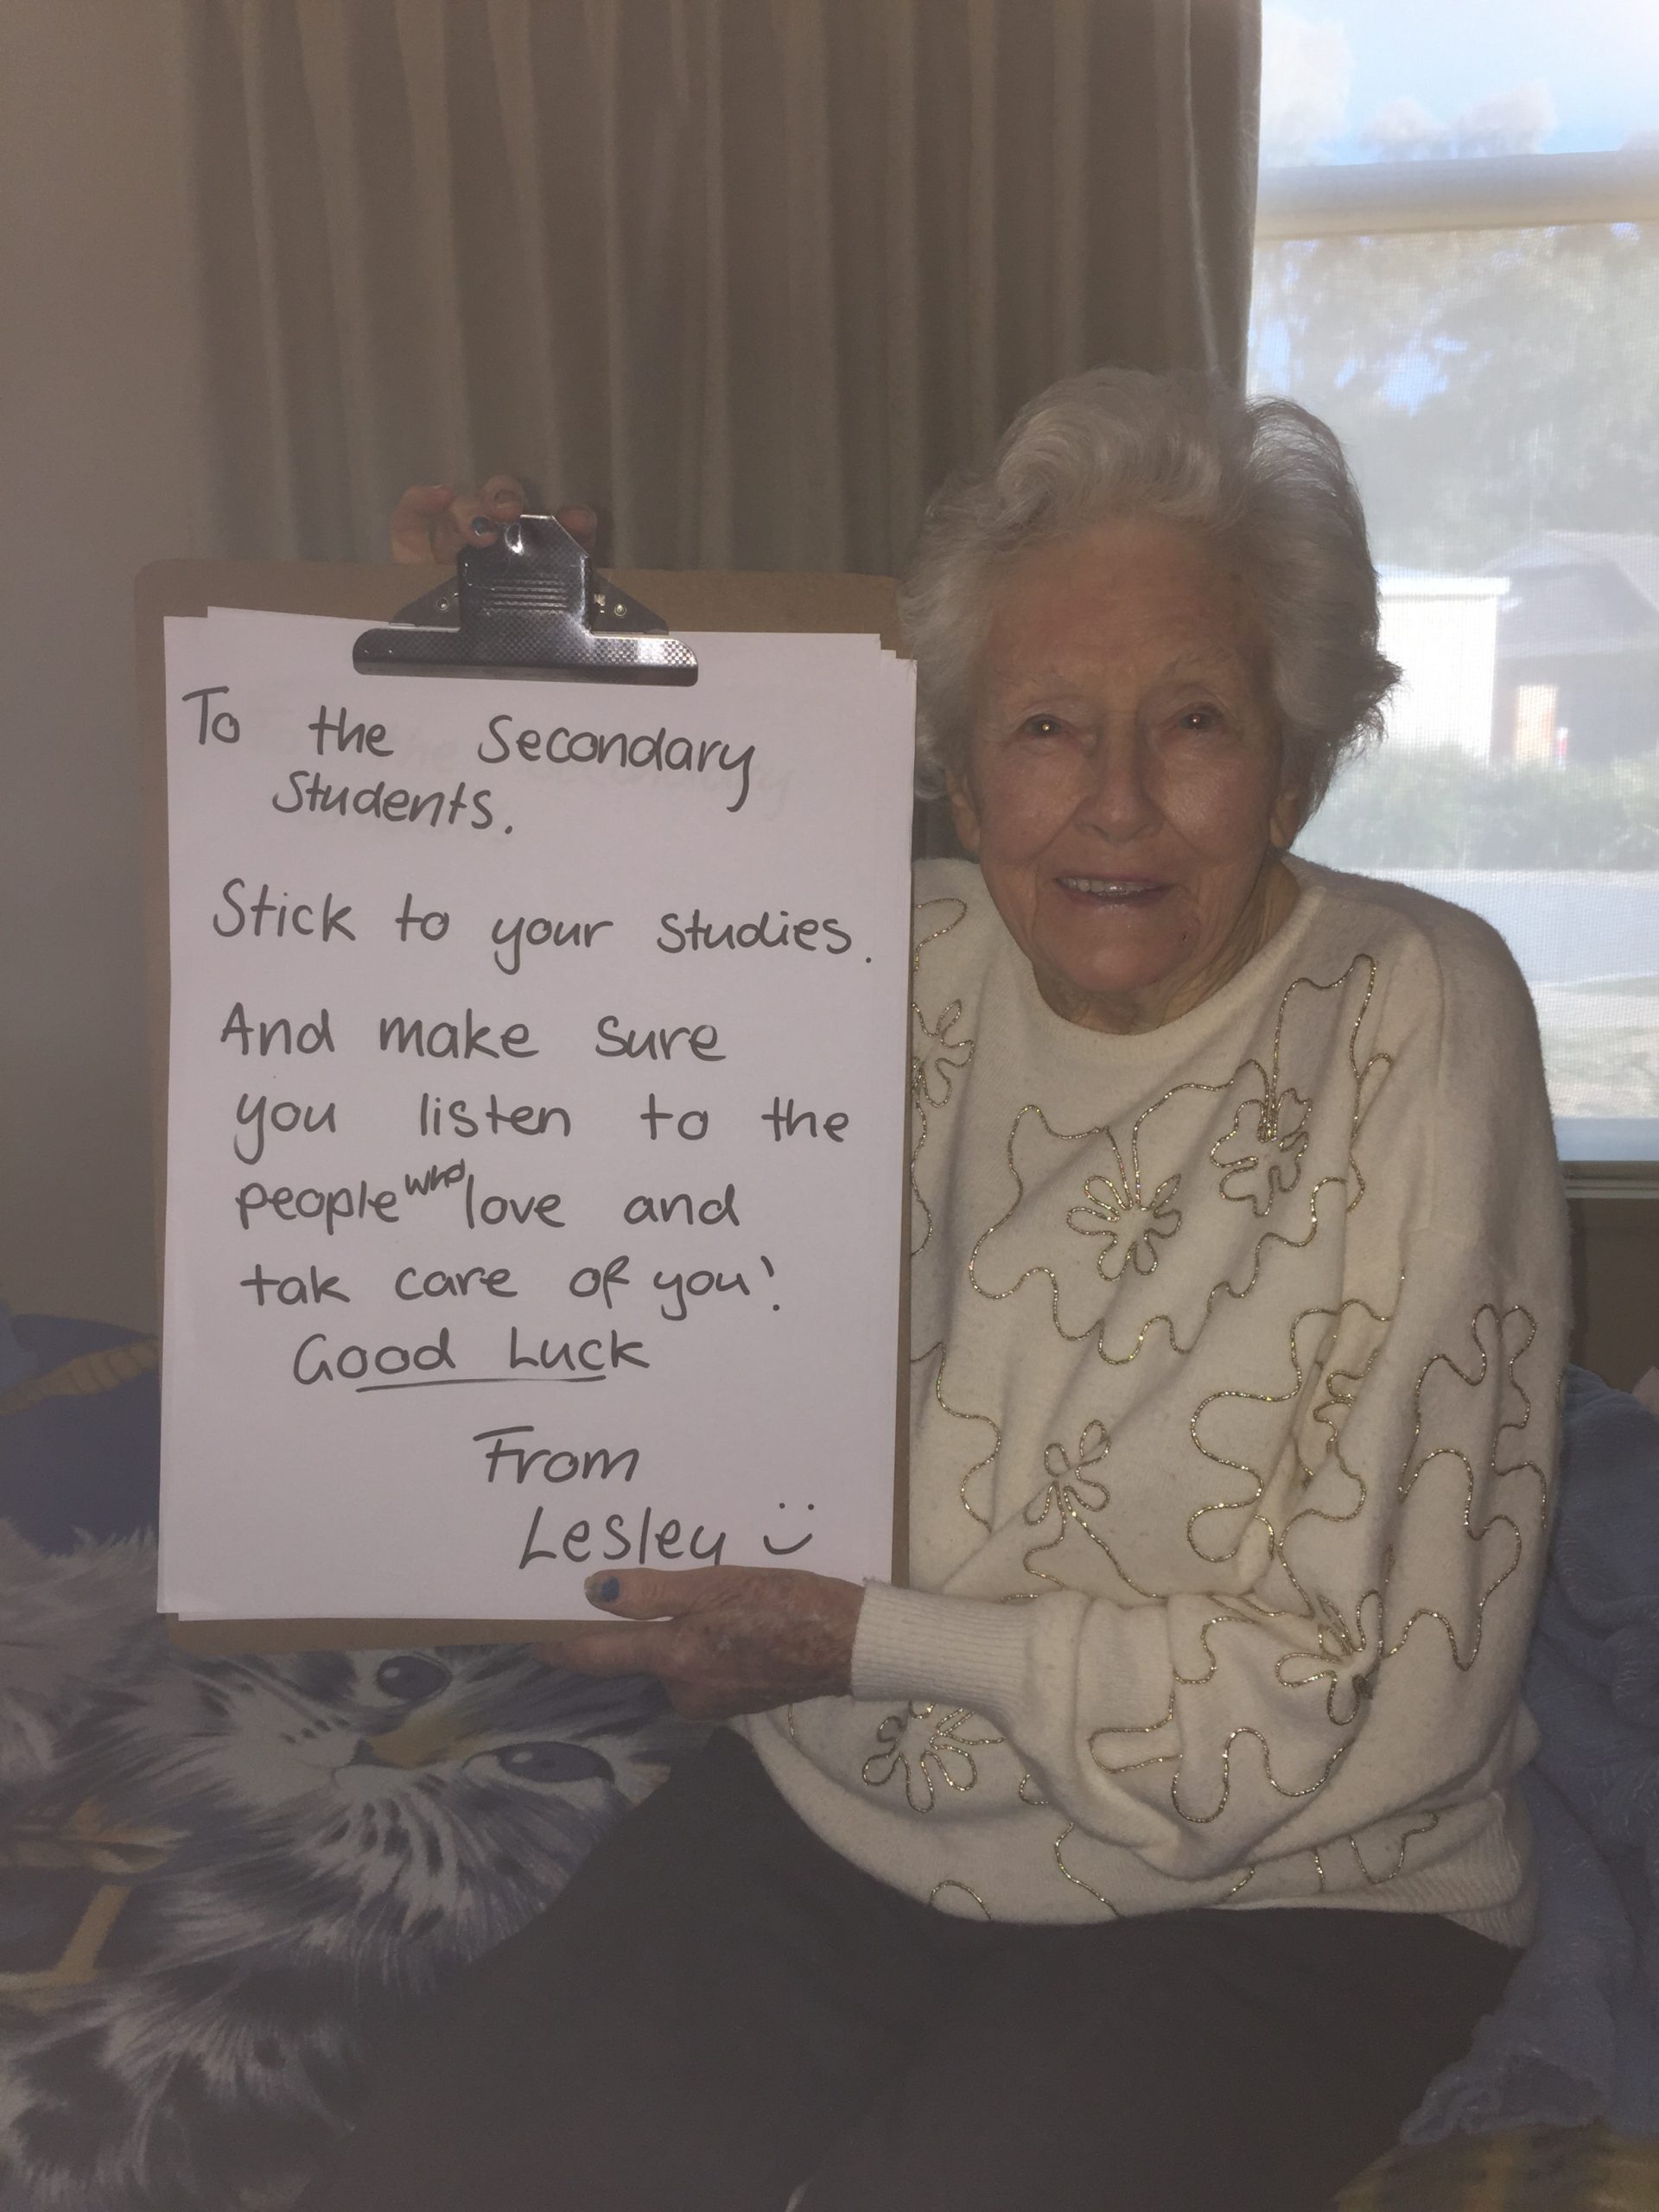 To the Secondary
Students.
Stick to your studies.
And make sure
you listen to the
people who love and
tak care of you!
Good Luck
From
Lesley :)